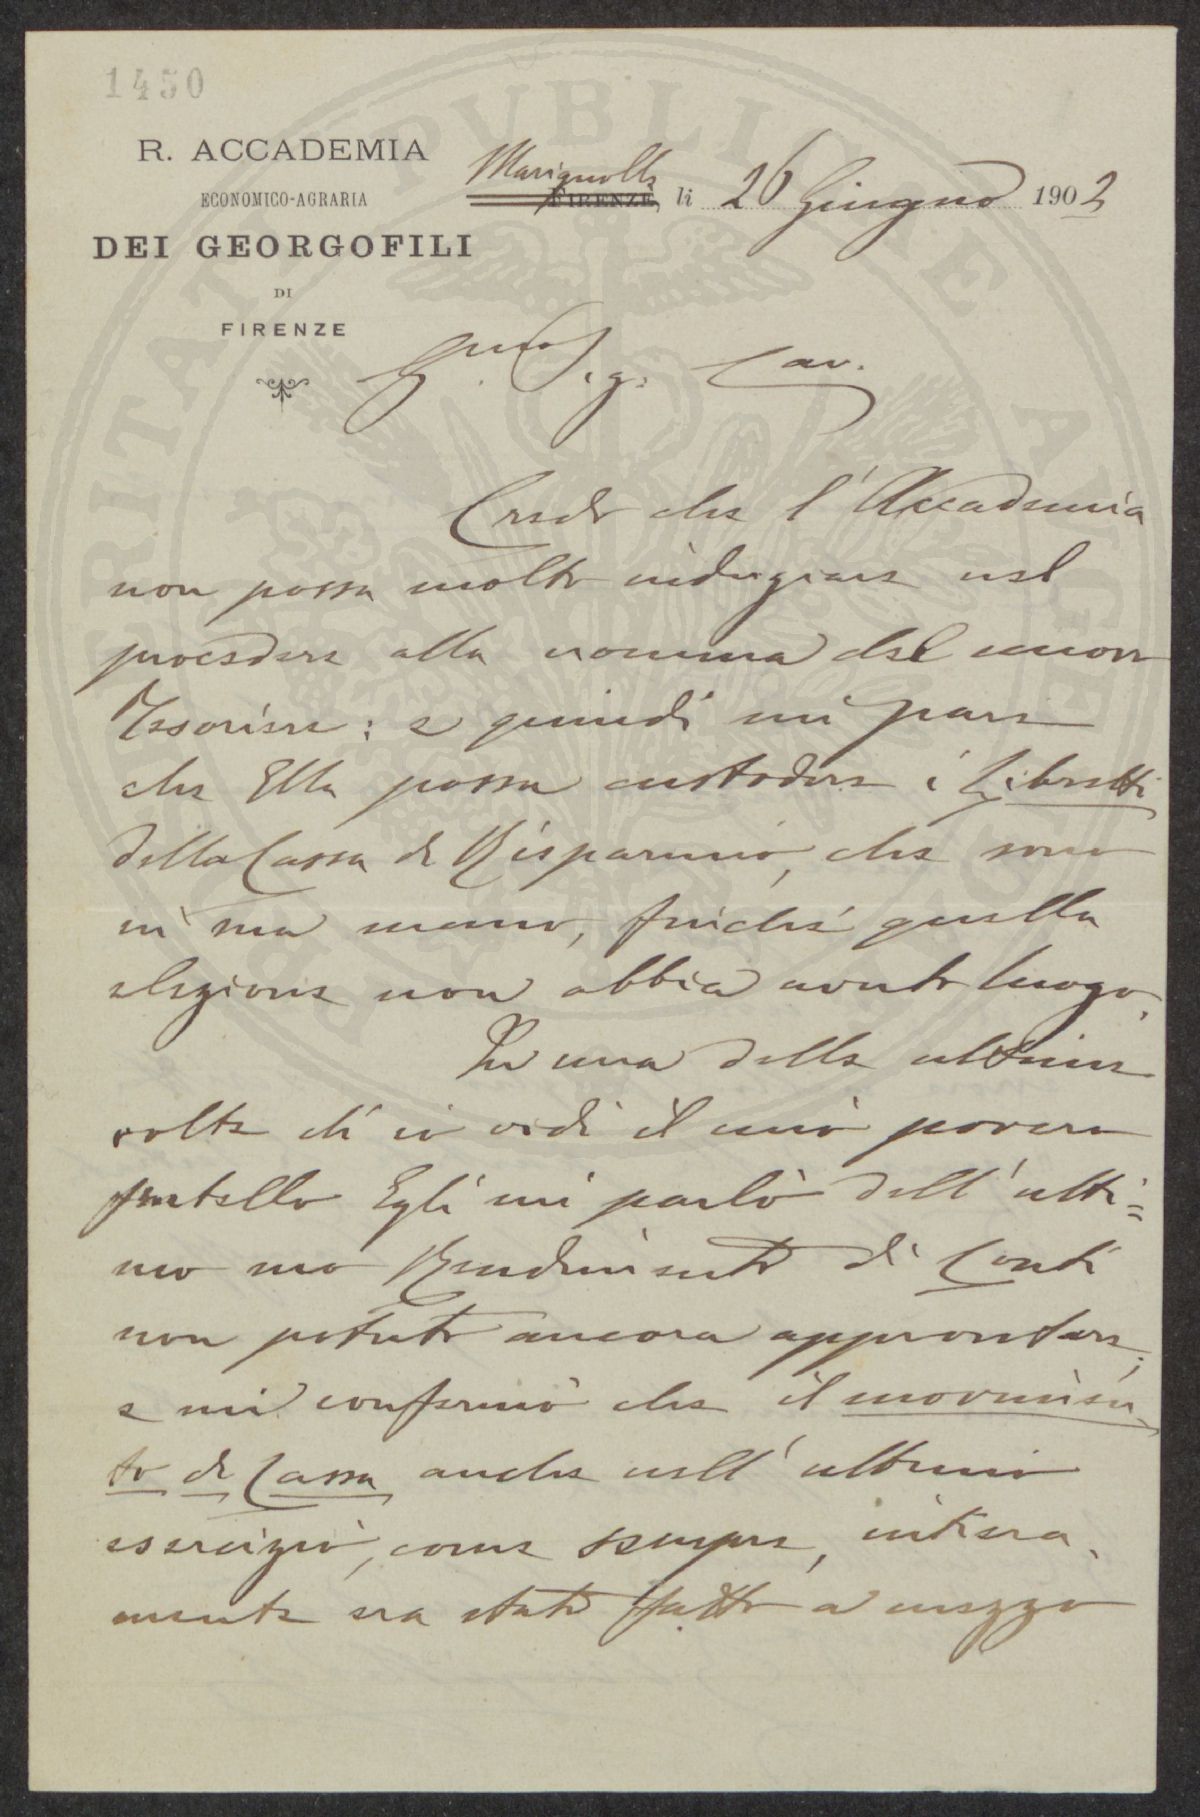 1450
R. ACCADEMIA
ECONOMICO-AGRARIA
DEI GEORGOFILI
DI
FIRENZE
Marignolle
FIRENZE, li 26 Giugno 1902
G.mo Sig. Cav.
Credo che l'Accademia
non possa molto indugiare nel
procedere alla nomina del nuovo
Tesoriere: e quindi mi pare
che Ella possa custodire i Libretti
della Cassa di Risparmio, che sono
in sua mano, finché quella
elezione non abbia avuto luogo.
In una delle ultime
volte ch'io vidi il mio povero
fratello Egli mi parlò dell'ulti=
mo suo Rendimento di Conti
non potuto ancora approntare;
e mi confermò che il movimen
to di Cassa anche nell'ultimo
esercizio, come sempre, intiera.
mente era stato fatto a mezzo